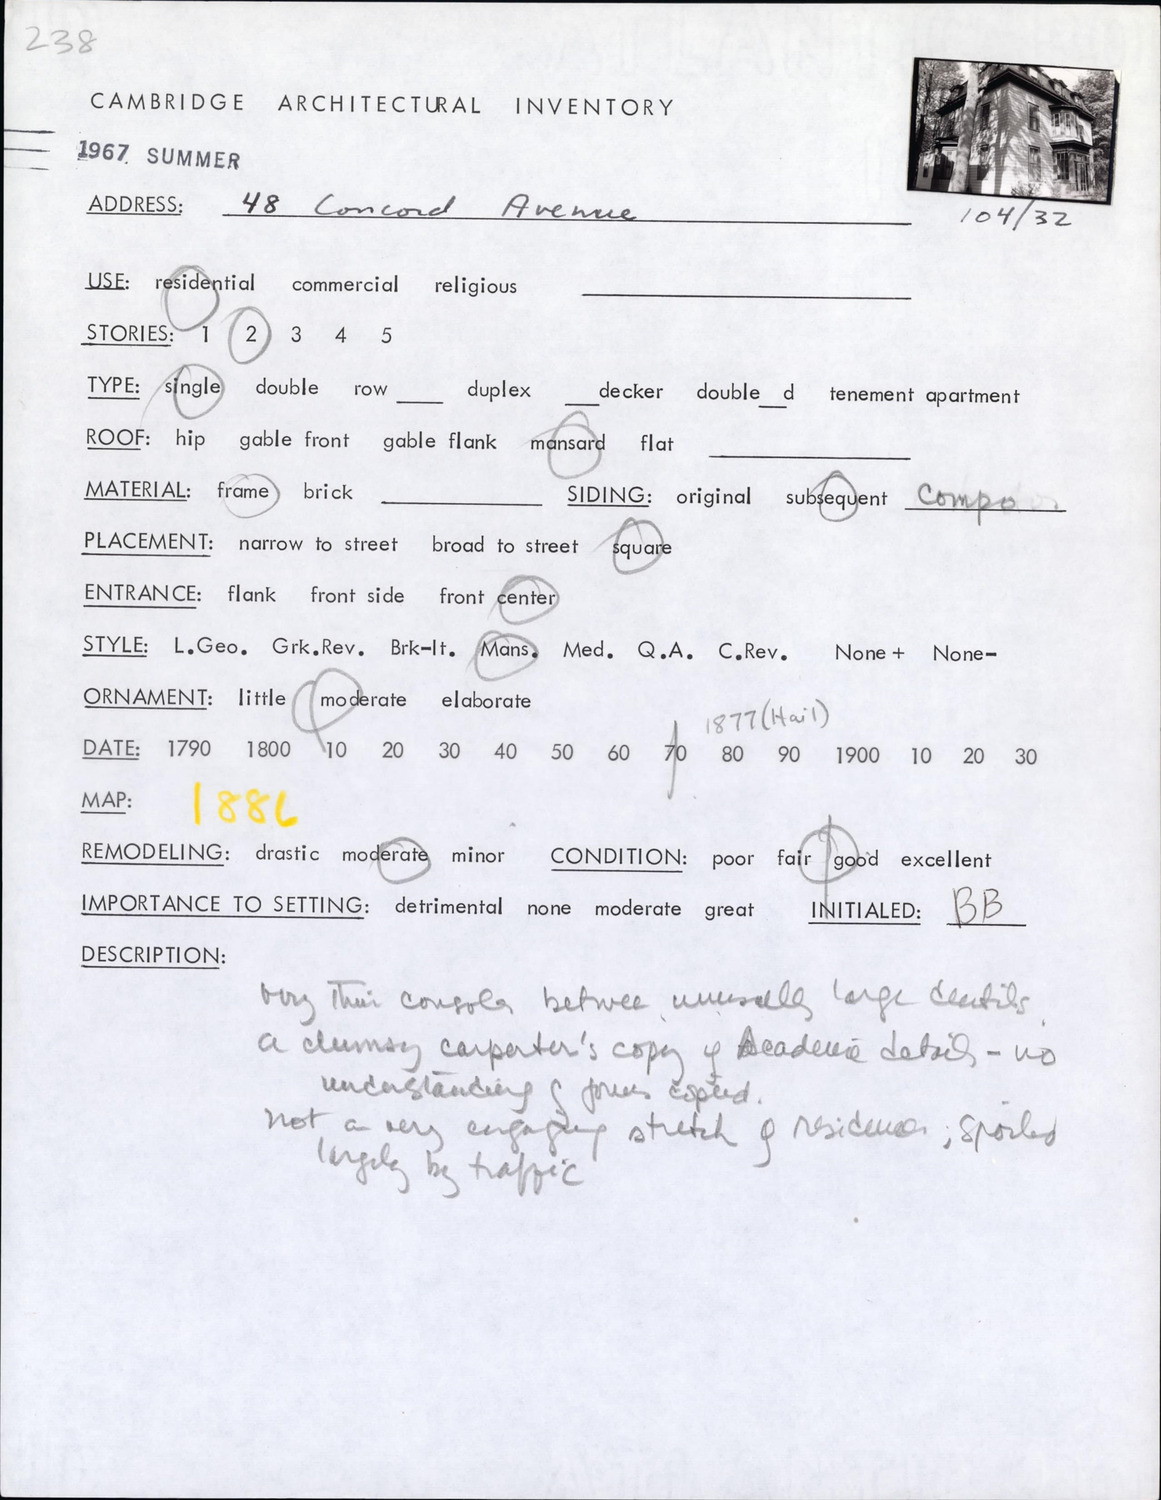 238
CAMBRIDGE ARCHITECTURAL INVENTORY
1967 SUMMER
ADDRESS: 48 Concord Avenue
104/32
USE: residential commercial religious
STORIES: 1 2 3 4 5
TYPE: single double row ___ duplex ___decker double__d tenement apartment
ROOF: hip gable front gable flank mansard flat
MATERIAL: frame brick SIDING: original subsequent Compo
PLACEMENT: narrow to street broad to street square
ENTRANCE: flank front side front center
STYLE: L.Geo. Grk.Rev. Brk-It. Mans. Med. Q.A. C.Rev. None+ None-
ORNAMENT: little moderate elaborate
1877 (Hail)
DATE: 1790 1800 10 20 30 40 50 60 70 80 90 1900 10 20 30
MAP: 1886
REMODELING: drastic moderate minor CONDITION: poor fair good excellent
IMPORTANCE TO SETTING: detrimental none moderate great INITIALED: BB
DESCRIPTION:
Very thin consoles between unusually large dentils.
a clumsy carpenter's copy of Academic details - no
understanding of forms copied.
Not a very engaging stretch of residences; spoiled
largely by traffic